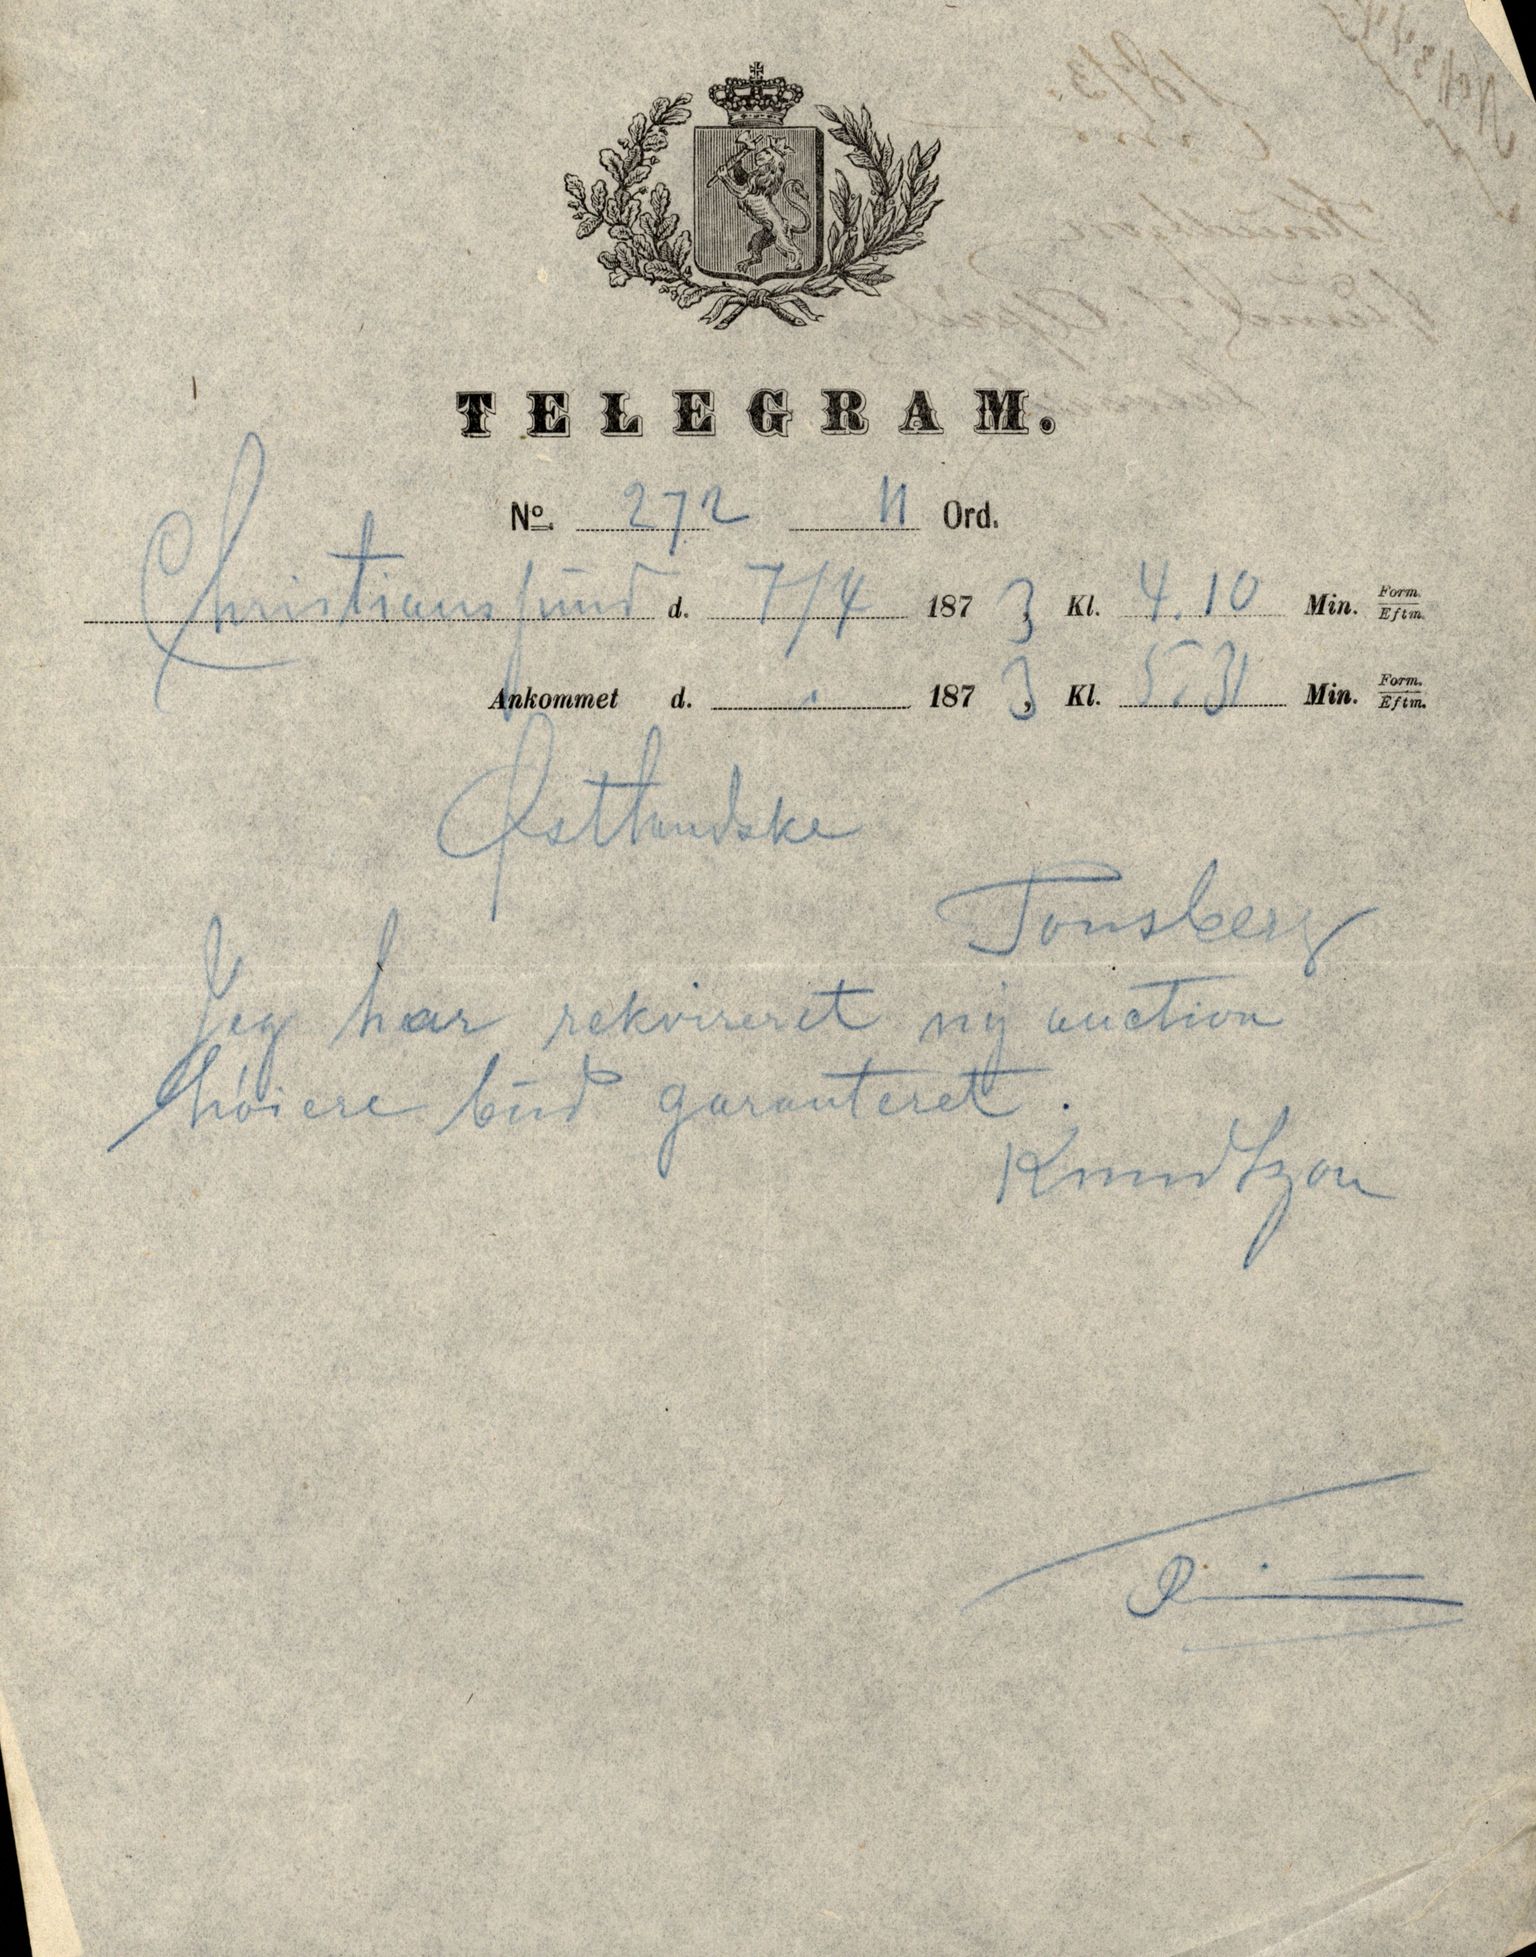 TELEGRAM.
No. 272 11 Ord.
Christianssund d. 7/4 1873, Kl. 4.10 Min. Form. Eftm.
Ankommet d. 1873, Kl. 5.31 Min. Form. Eftm.
Østlandske
Tønsberg
Jeg har rekvireret ny auction
høiere bud garanteret.
Knudtzon